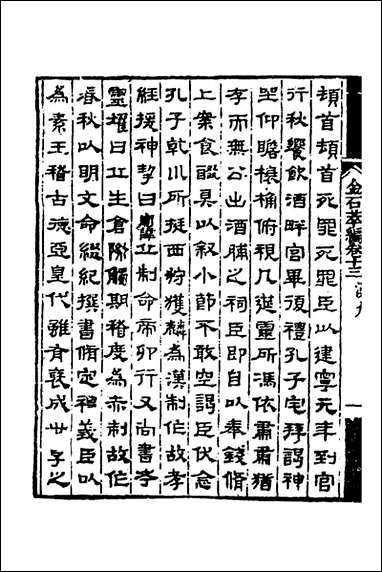 金石萃編卷十三 漢九 一
頓首頓首死罪死罪臣以建寧元年到官
行秋饗飲酒畔宮畢復禮孔子宅拜謁神
坐仰瞻榱桷俯視几筵靈所馮依肅肅猶
存而無公出酒脯之祠臣即自以奉錢脩
上案食醊具以叙小節不敢空謁臣伏念
孔子乾川所挺西狩獲麟為漢制作故孝
經援神挈曰丘制命帝卯行又尚書考
靈燿曰丘生倉際觸期稽度為赤制故作
春秋以明文命綴紀撰書脩定禮義臣以
為素王稽古德亞皇代雖有褒成世享之